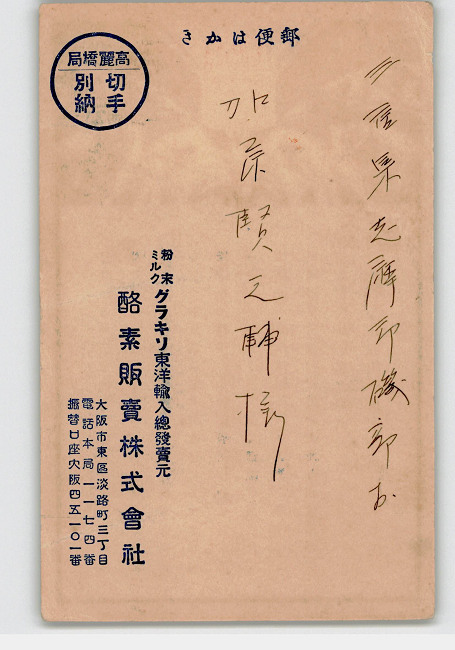 郵便はかき
三重県志摩郡磯部村
賢之輔様
高麗橋局
切手
別納
粉末ミルク グラキソ東洋輸入總發賣元
酪素販賣株式會社
大阪市東區淡路町三丁目
電話本局一一七四番
振替口座大阪四五一〇一番